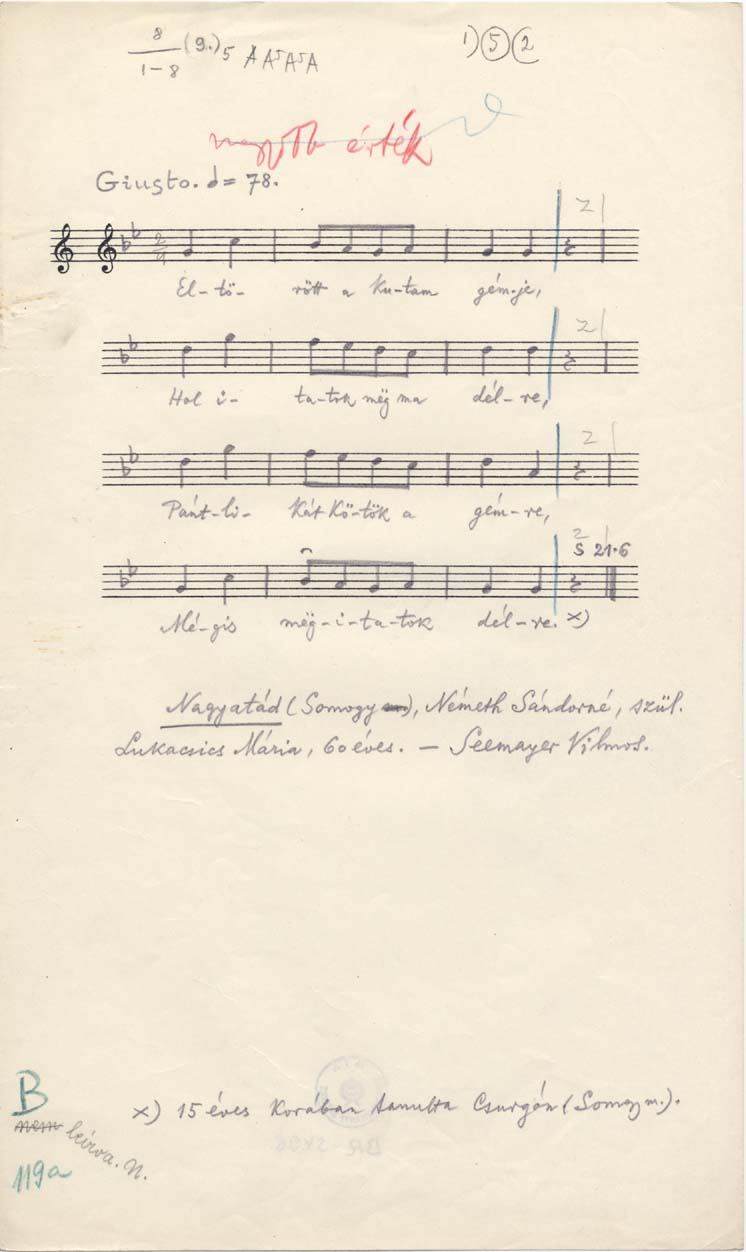 8/1-8 (9.) 5 A A⁵ A⁵ A 1) 5 2
nagyobb érték
Giusto. = 78.
2/4 z
El-tö- rött a Ku-tam gém-je,
z
Hol i- ta-tok mëg ma dél-re,
z
Pánt-li- kát kö-tök a gém-re,
z
S 21·6
Mé-gis mëg-i-ta-tok dél-re. x)
Nagyatád (Somogy), Németh Sándorné, szül.
Lukacsics Mária, 60 éves. – Seemayer Vilmos.
B
x) 15 éves korában tanulta Csurgón (Somogy m.).
nem leírva. N.
119a